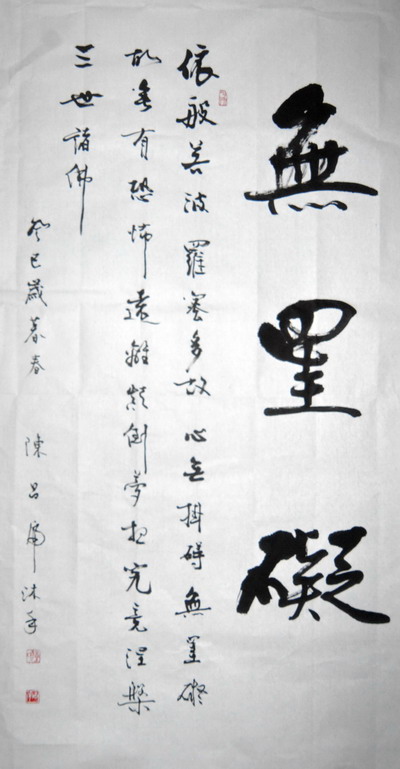 無罣礙
依般若波羅蜜多故心无掛碍無罣礙
故無有恐怖遠離顛倒夢想究竟涅槃
三世諸佛
癸巳歲暮春 陳 沐手